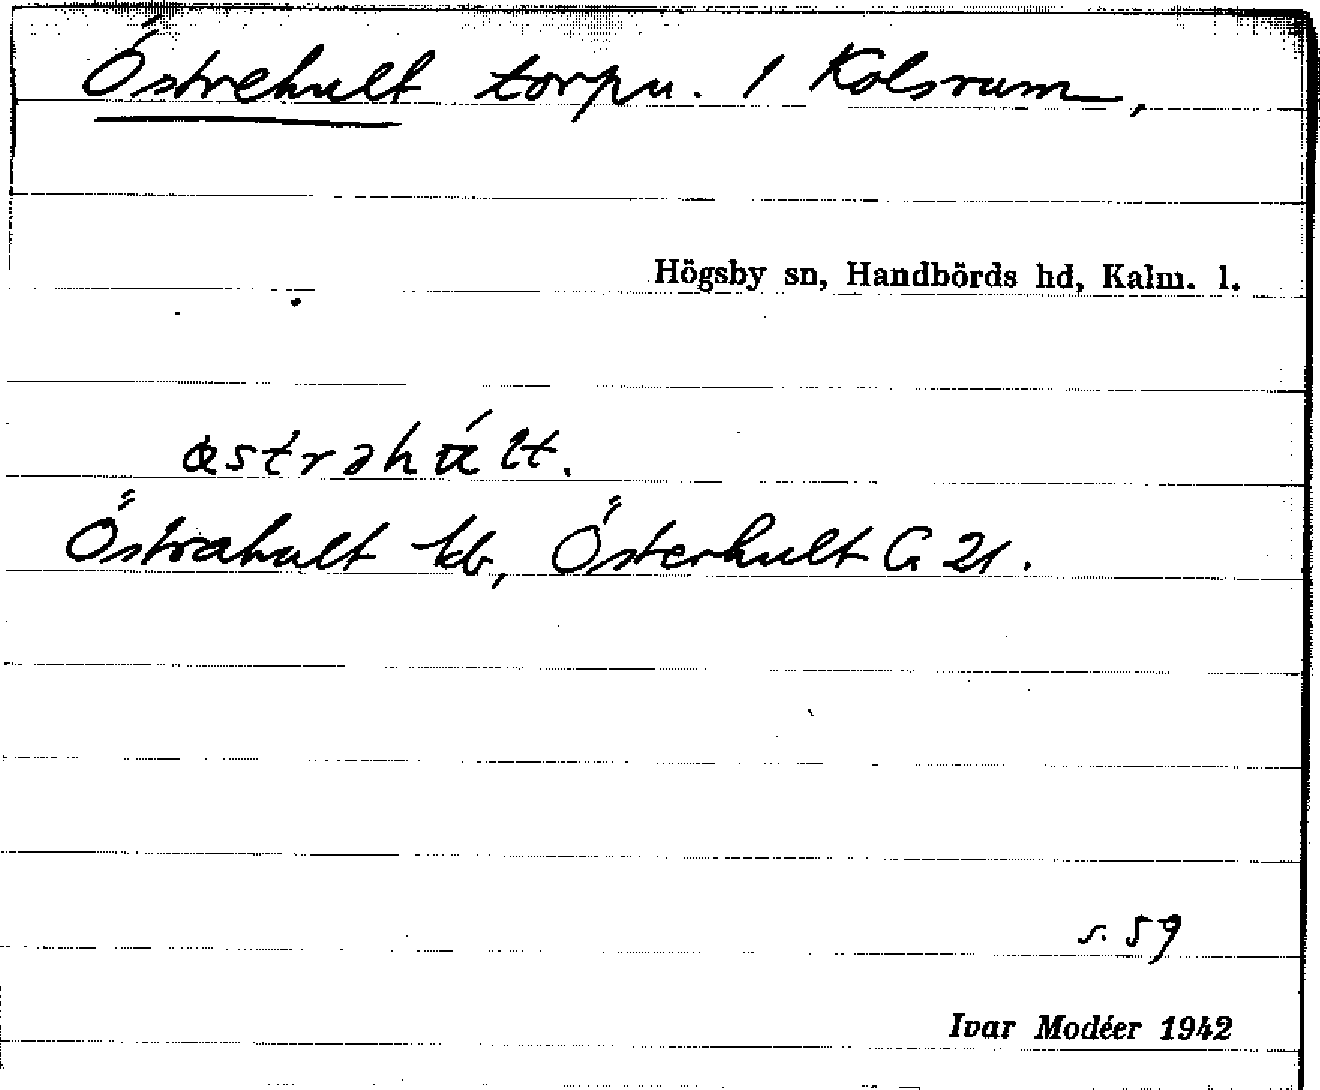 Östrehult torpu. / Kolsrum,
Högsby sn, Handbörds hd, Kalm. l.
östrəhúlt.
Östrahult kb, Österhult G 21.
s. 59
Ivar Modéer 1942